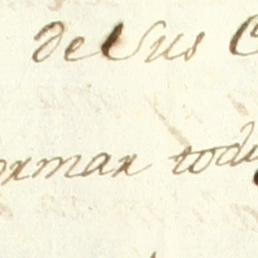 de sus C
ormar todo